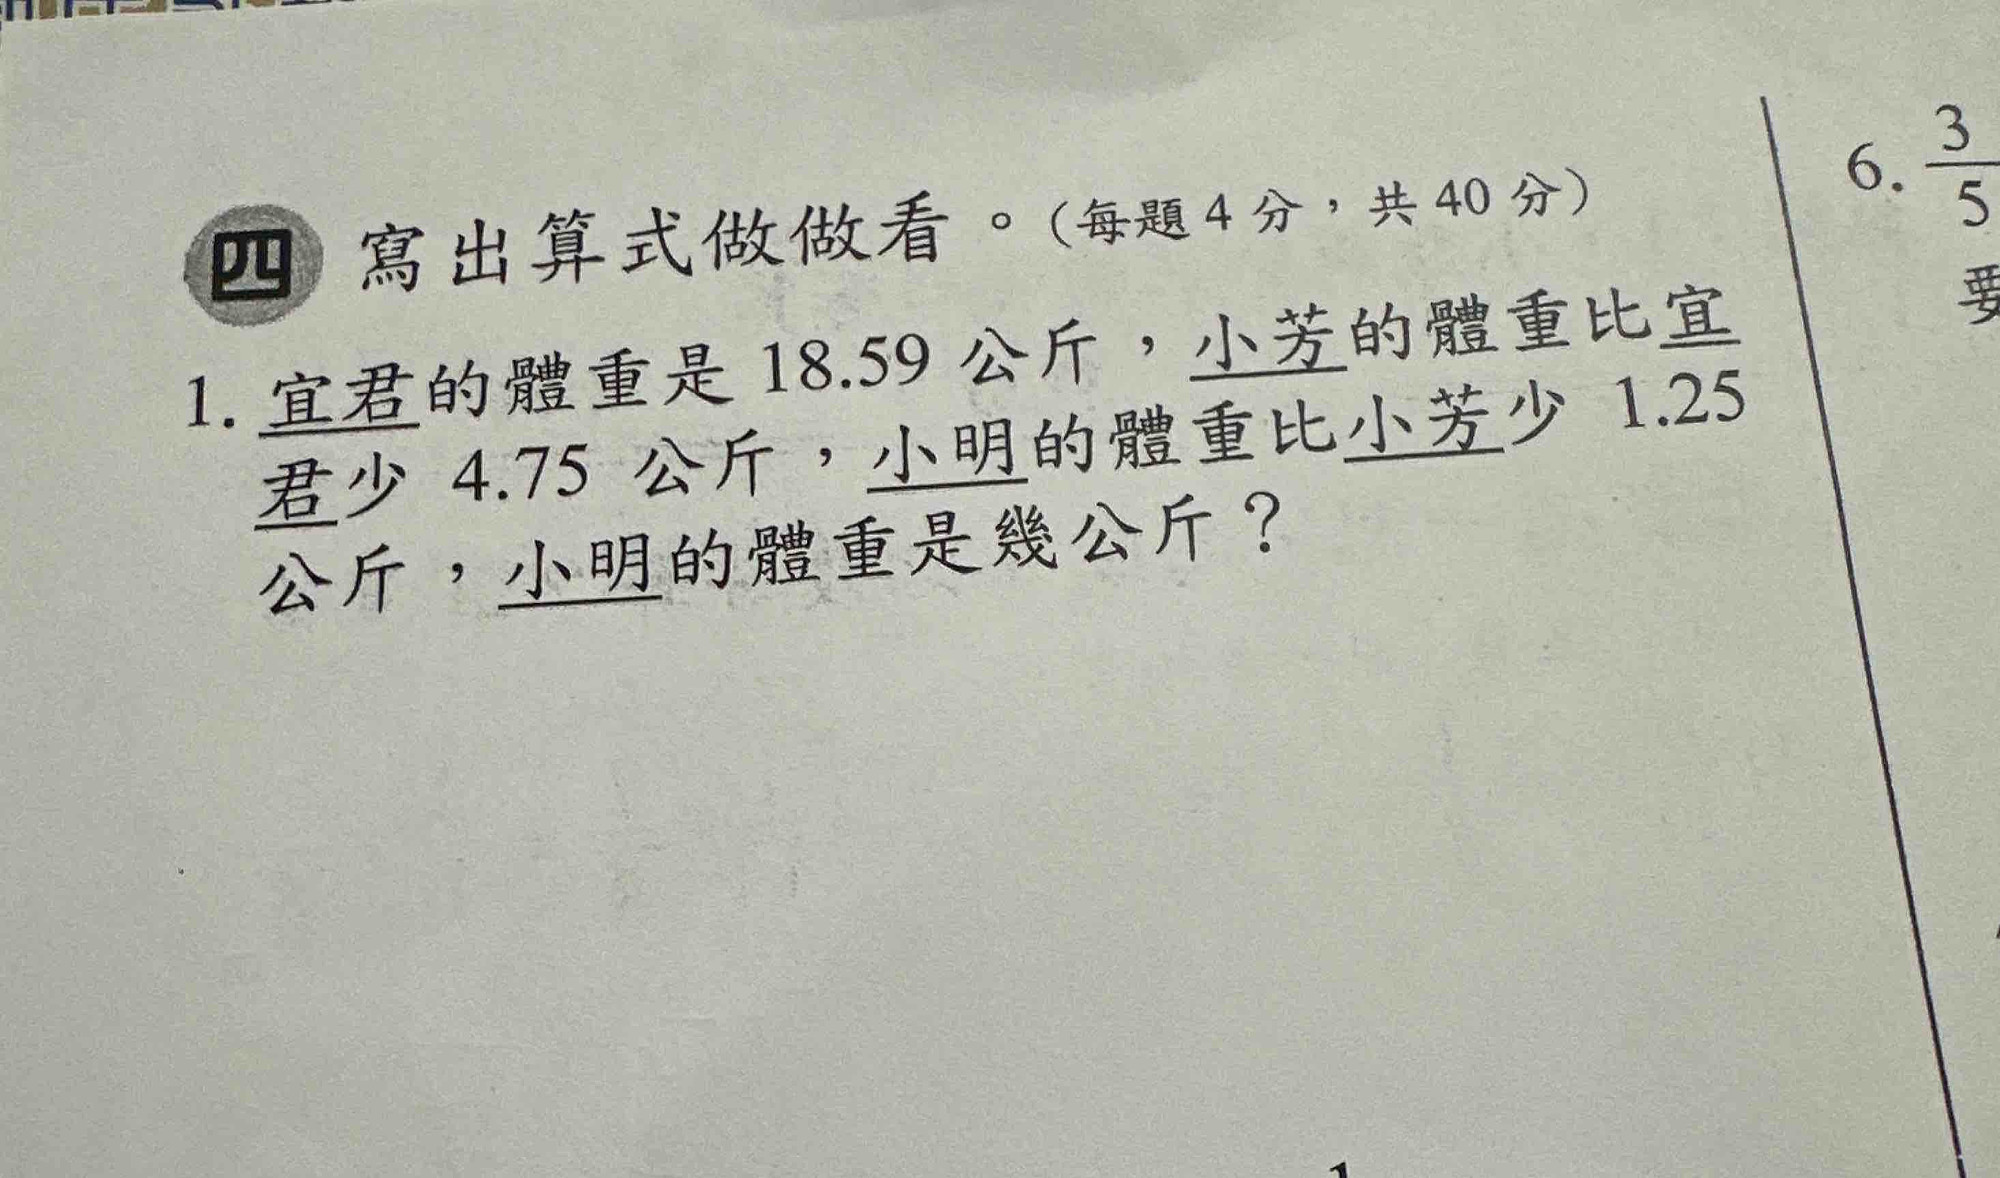 四 寫出算式做做看。(每題 4 分，共 40 分)
1. 宜君的體重是 18.59 公斤，小芳的體重比宜
君少 4.75 公斤，小明的體重比小芳少 1.25
公斤，小明的體重是幾公斤？
6. 3/5
要